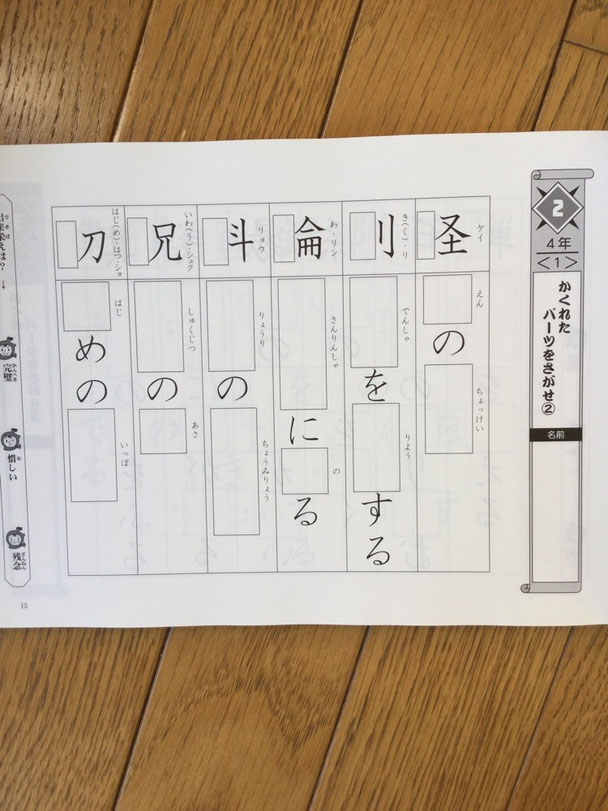 2
4年
<1>
かくれた
パーツをさがせ②
名前
圣 ケイ
えん
の
ちょっけい
刂 き(く)・リ
でんしゃ
を
りよう
する
侖 わ・リン
さんりんしゃ
に
の
る
斗 リョウ
りょうり
の
ちょうみりょう
兄 いわ(う)・シュク
しゅくじつ
の
あさ
刀 はじ(め)・はつ・ショ
はじ
めの
いっぽ
↓
完璧 かんぺき
惜しい お
残念 ざんねん
15